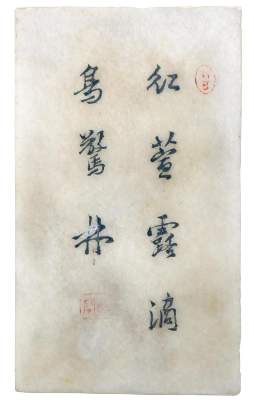 紅萱露滴
鳥驚林